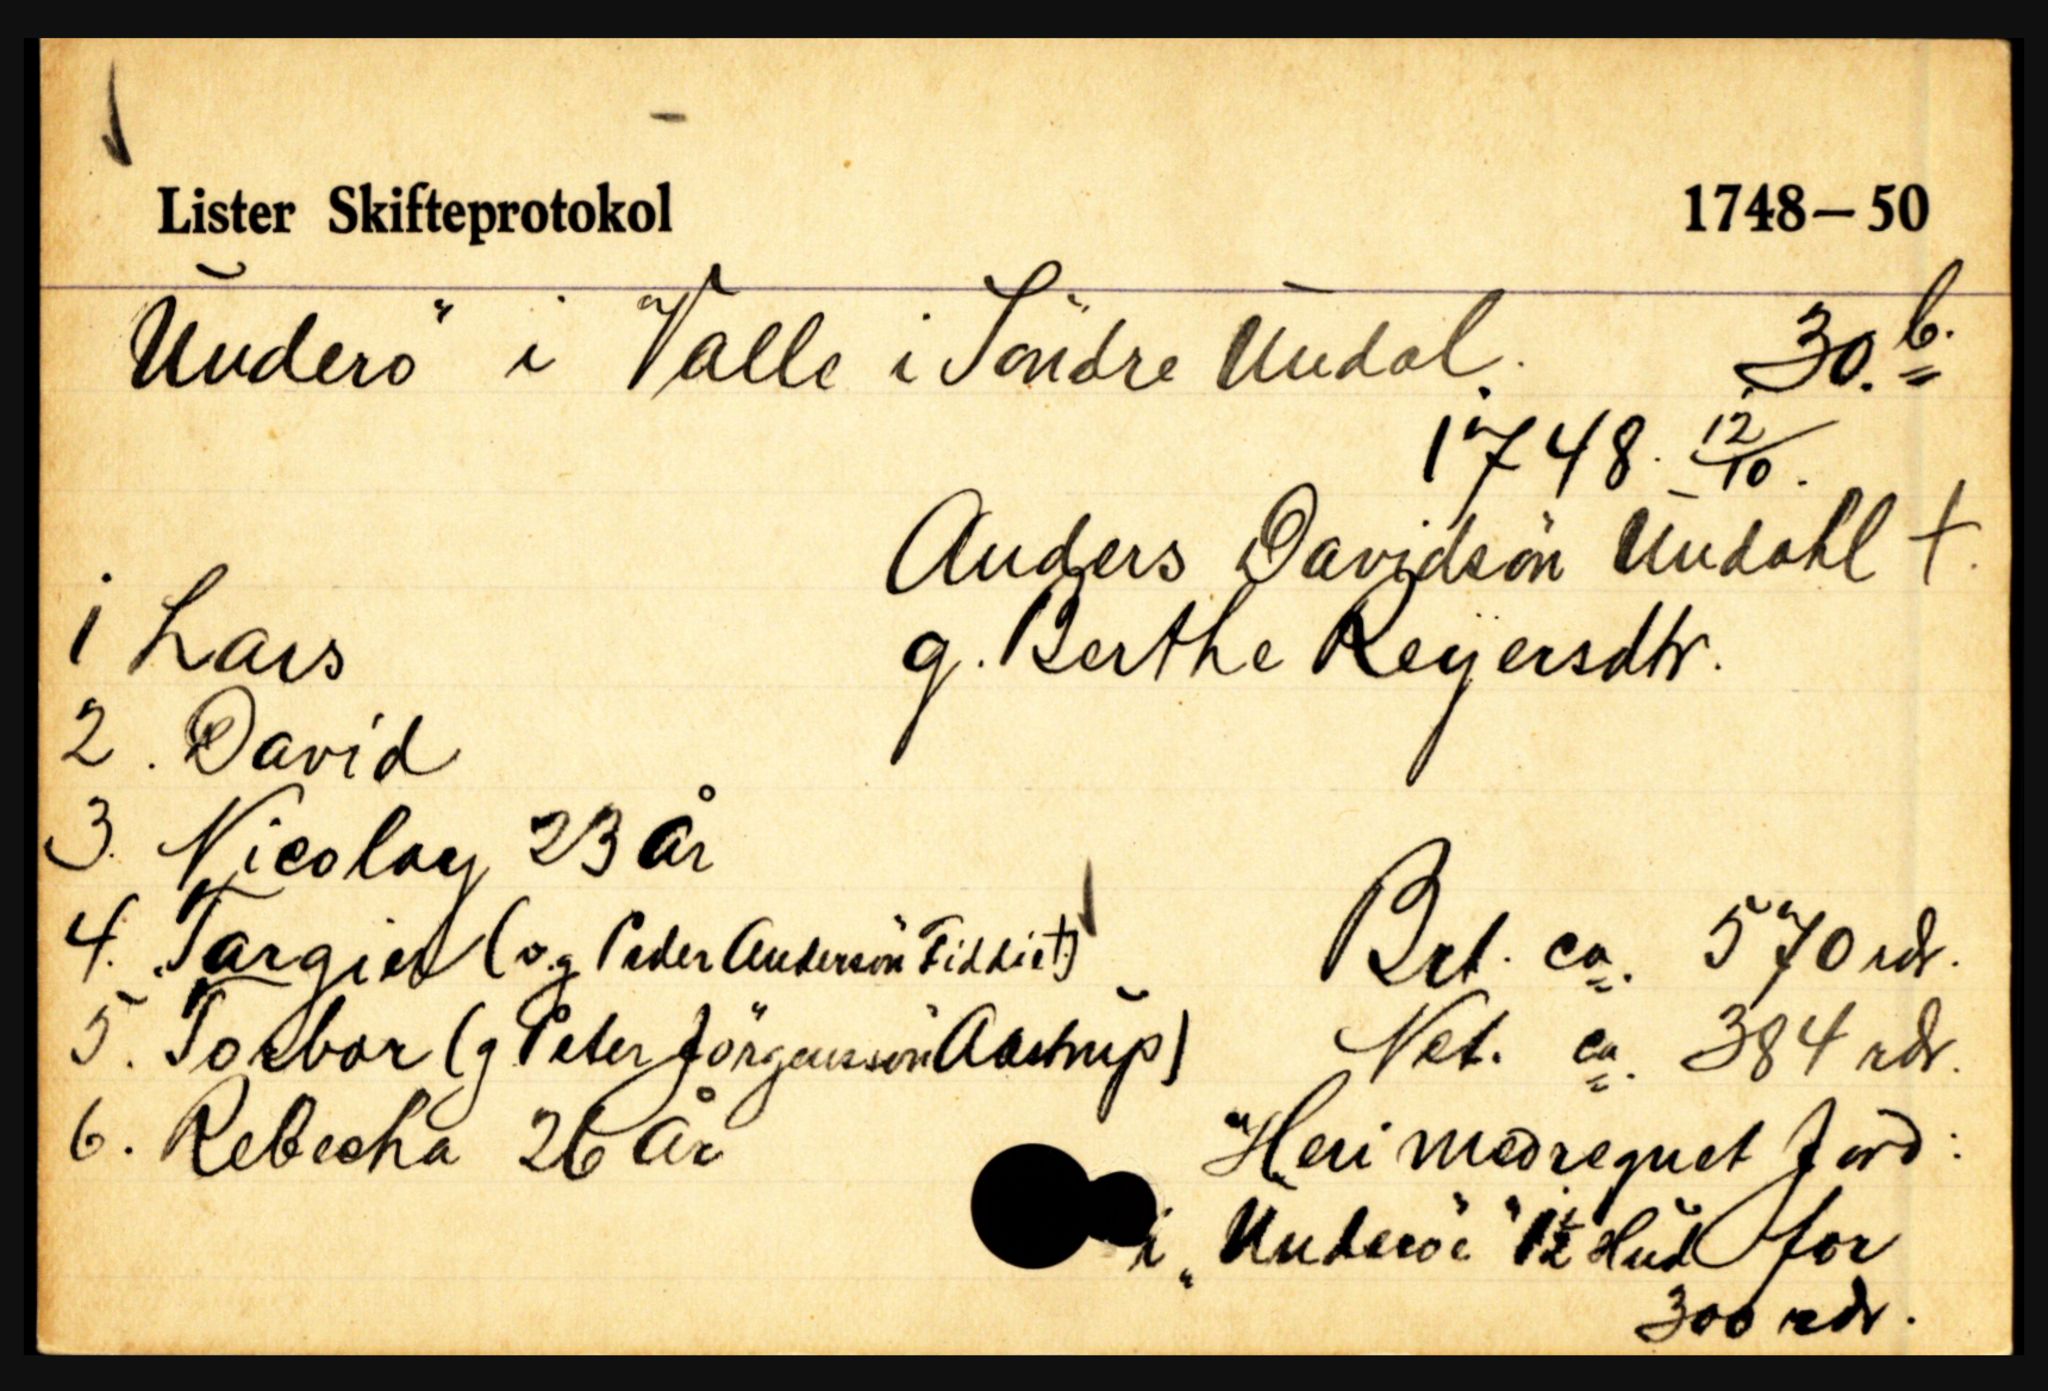 Lister Skifteprotokol 1748–50
Underö i Valle i Söndre Undal. 30.b.
1748. 12/10.
Anders Davidsön Undahl †.
g. Berthe Reyersdtr.
1 Lars
2. David
3. Nicolay 23 år
4. Targier (o.g Peder Andersön Fiddie†)
5. Torbor (g Peter Jörgenssön Aastrup)
6. Rebecha 26 år
Brt. ca. 570 rdr.
Net. ca. 384 rdr.
Heri medregnet Jord:
i „Underöe" 1½ Hud for
300 rdr.